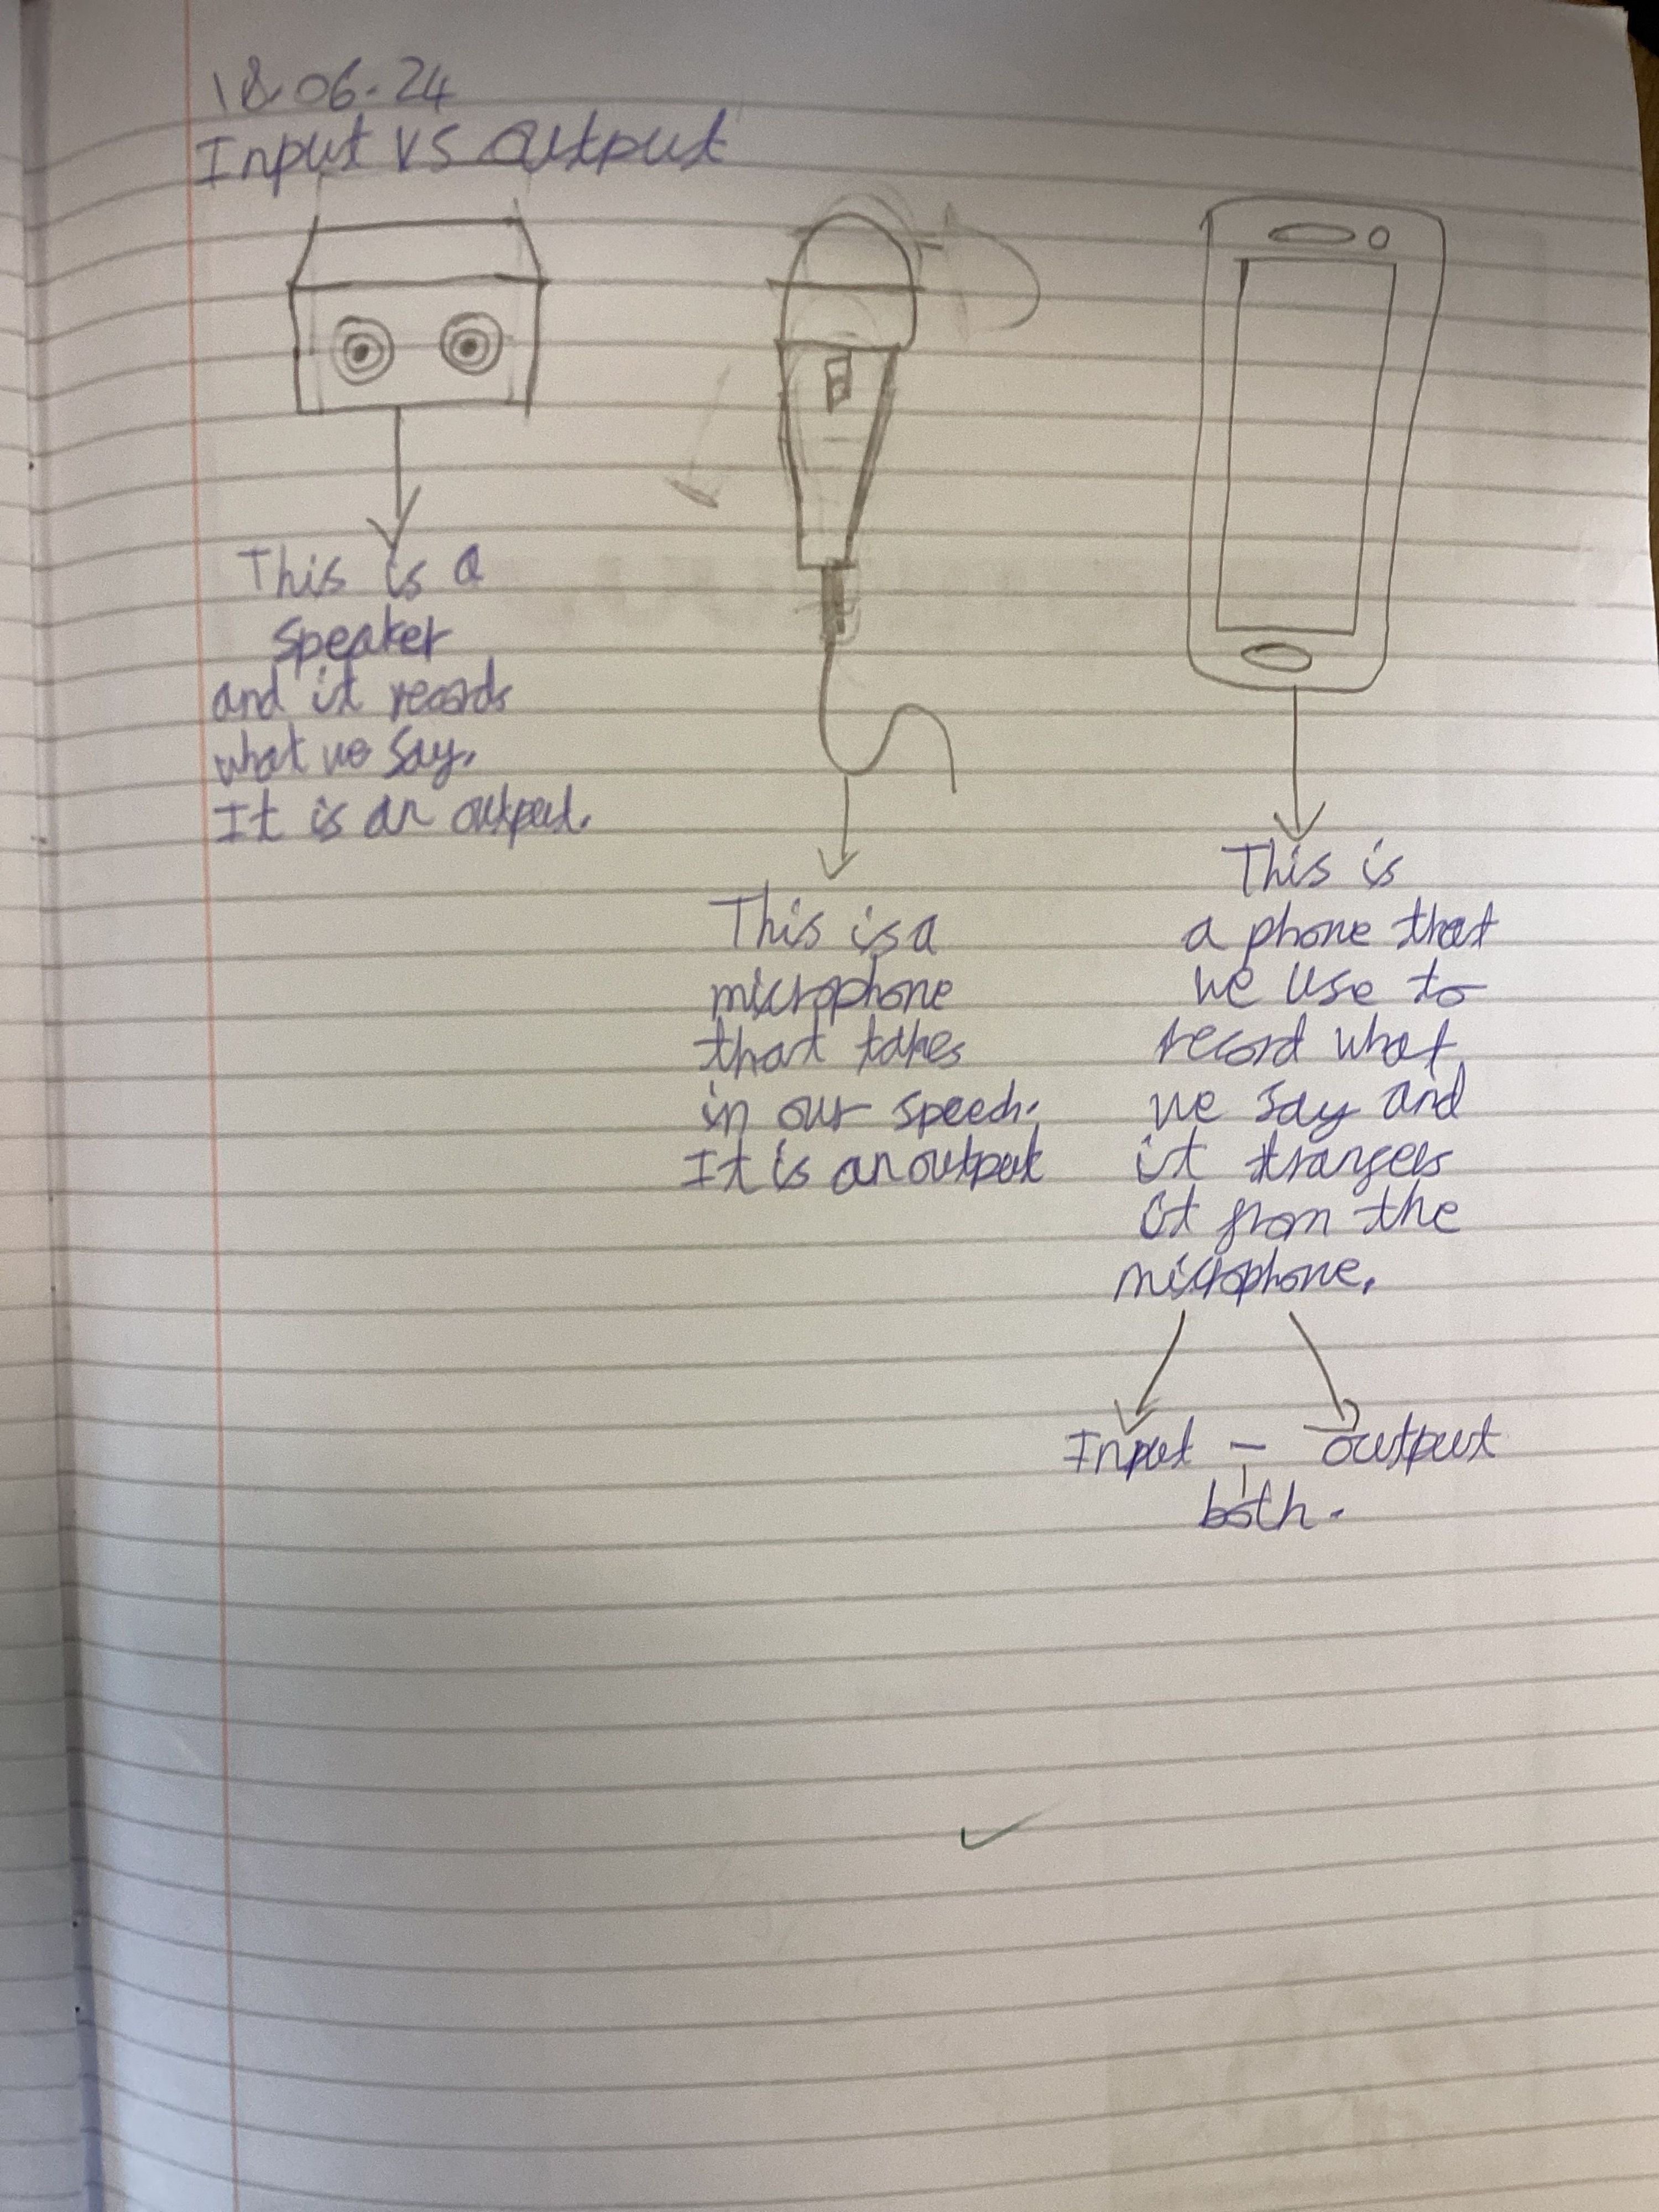 18.06.24
Input VS output
This is a
speaker
and it records
what we say.
It is an output.
This is a
microphone
that takes
in our speech.
It is an output
This is
a phone that
we use to
record what
we say and
it
it from the
microphone.
Input - output
both.